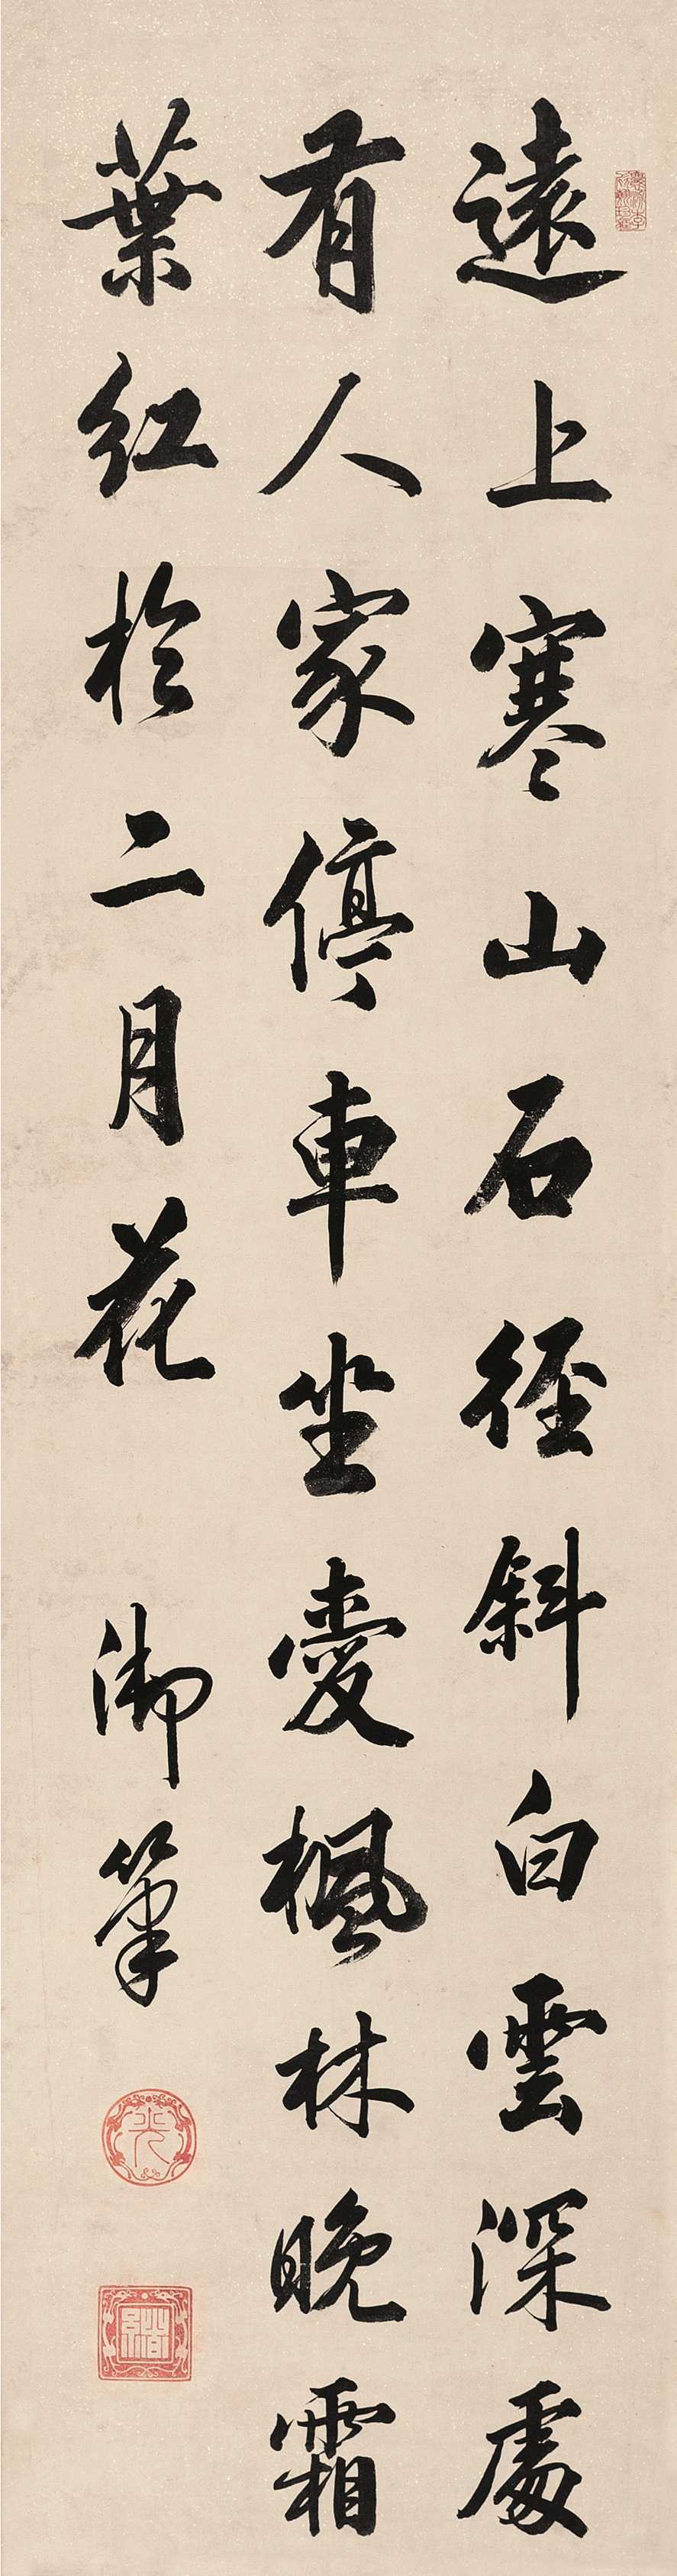 遠上寒山石徑斜白雲深處
有人家停車坐愛楓林晚霜
葉紅於二月花
御筆
光
緒